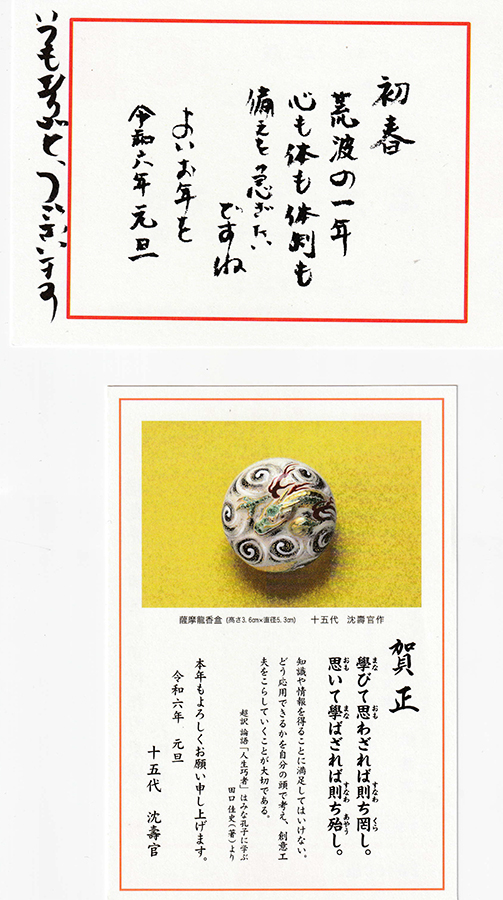 初春
荒波の一年
心も体も体制も
備えを急ぎたい
ですね
よいお年を
令和六年 元旦
いつも
薩摩龍香盒 (高さ3.6cm×直径5.3cm) 十五代 沈壽官作
賀正
學びて思わざれば則ち罔し。
まな おも すなわ くら
思いて學ばざれば則ち殆し。
おも まな すなわ あやう
知識や情報を得ることに満足してはいけない。
どう応用できるかを自分の頭で考え、創意工
夫をこらしていくことが大切である。
超訳 論語「人生巧者」はみな孔子に学ぶ
田口佳史(著)より
本年もよろしくお願い申し上げます。
令和六年 元旦
十五代 沈壽官